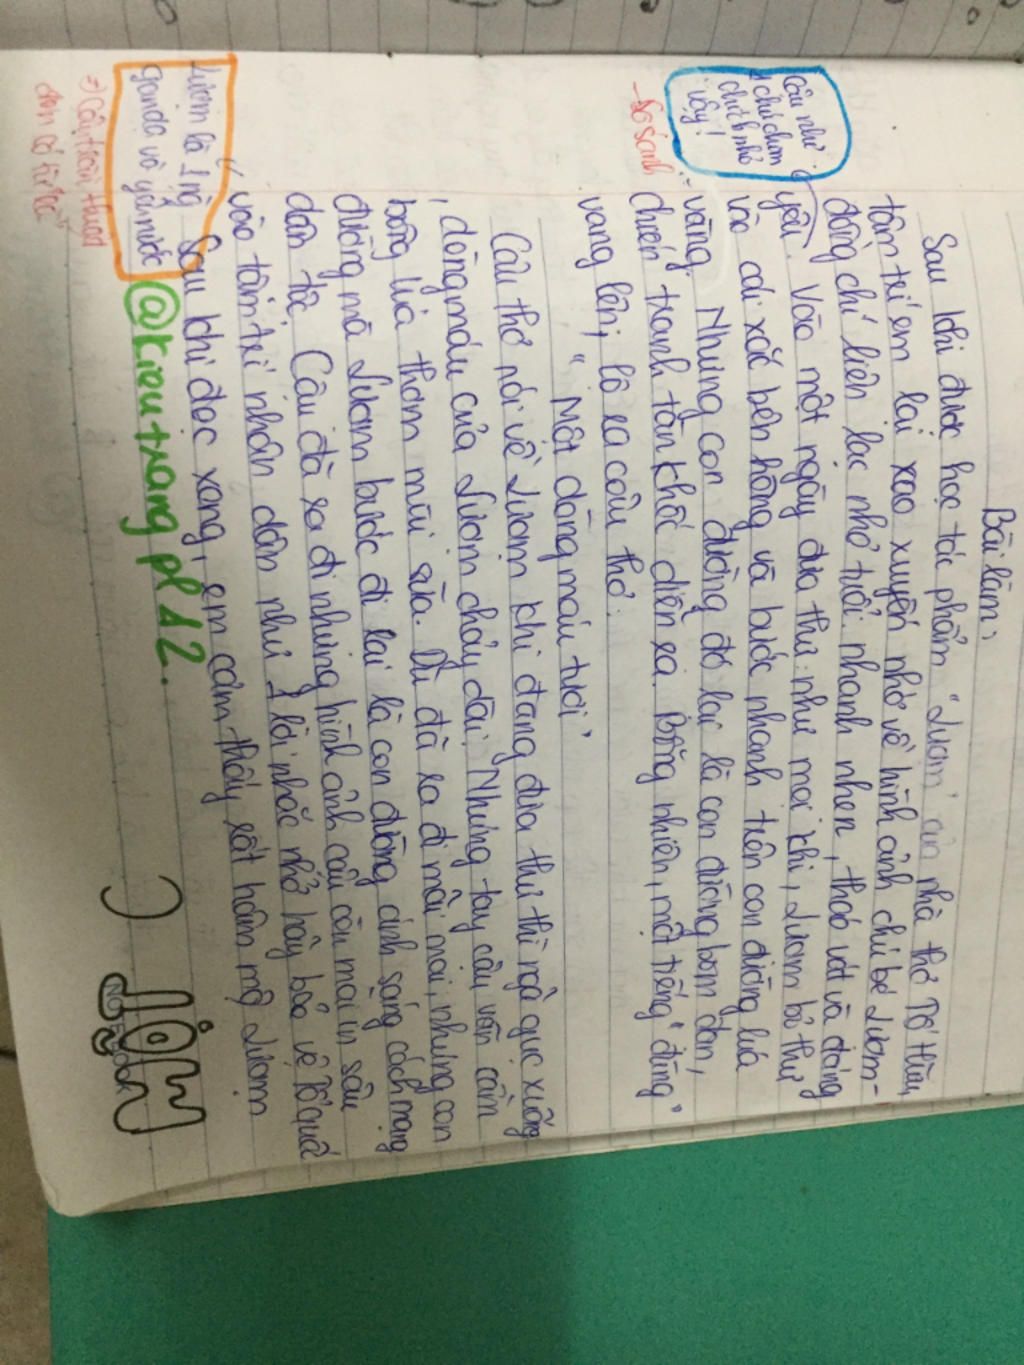 Bài làm:
Sau khi được học tác phẩm "Lượm" của nhà thơ Tố Hữu,
tâm trí em lại xao xuyến nhớ về hình ảnh chú bé Lượm-
đồng chí liên lạc nhỏ tuổi nhanh nhẹn, tháo vát và đáng
yêu. Vào một ngày đưa thư như mọi khi, Lượm bỏ thư
vào cái xắc bên hông và bước nhanh trên con đường lúa
vàng. Nhưng con đường đó lại là con đường bom đạn,
chiến tranh tàn khốc diễn ra. Bỗng nhiên, một tiếng "đùng"
vang lên, lộ ra câu thơ:
"Một dòng máu tươi"
Câu thơ nói về Lượm khi đang đưa thư thì ngã gục xuống
, dòng máu của Lượm chảy dài. Nhưng tay cậu vẫn cầm
bông lúa thơm mùi sữa. Dù đã ra đi mãi mãi, nhưng con
đường mà Lượm bước đi lại là con đường ánh sáng cách mạng
dân tộc. Cậu đã ra đi nhưng hình ảnh cậu còn mãi in sâu
vào tâm trí nhân dân như 1 lời nhắc nhở hãy bảo vệ Tổ quốc
Sau khi đọc xong, em cảm thấy rất hâm mộ Lượm
Cậu như
1 chú chim
chích nhỏ
vậy!
→ So sánh
Lượm là 1 ng
gan dạ và yêu nước
=> Câu trần thuật
đơn có từ "là"
@kieutrang pl 12.